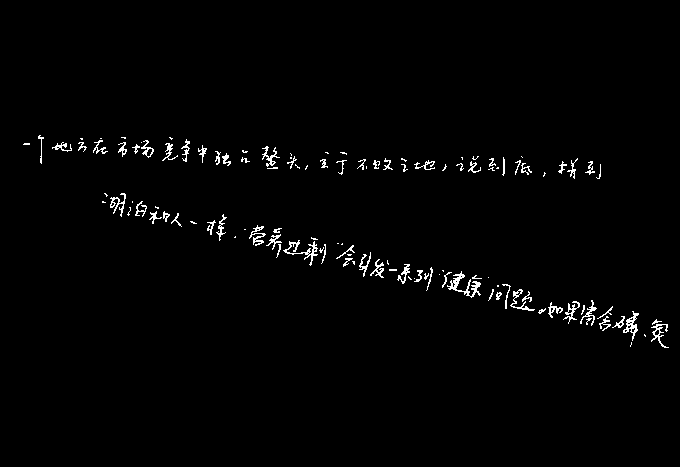 一个地方在市场竞争中独占鳌头,立于不败之地,说到底,搭到
湖泊和人一样,“营养过剩”会引发一系列“健康”问题。如果富含磷、氮